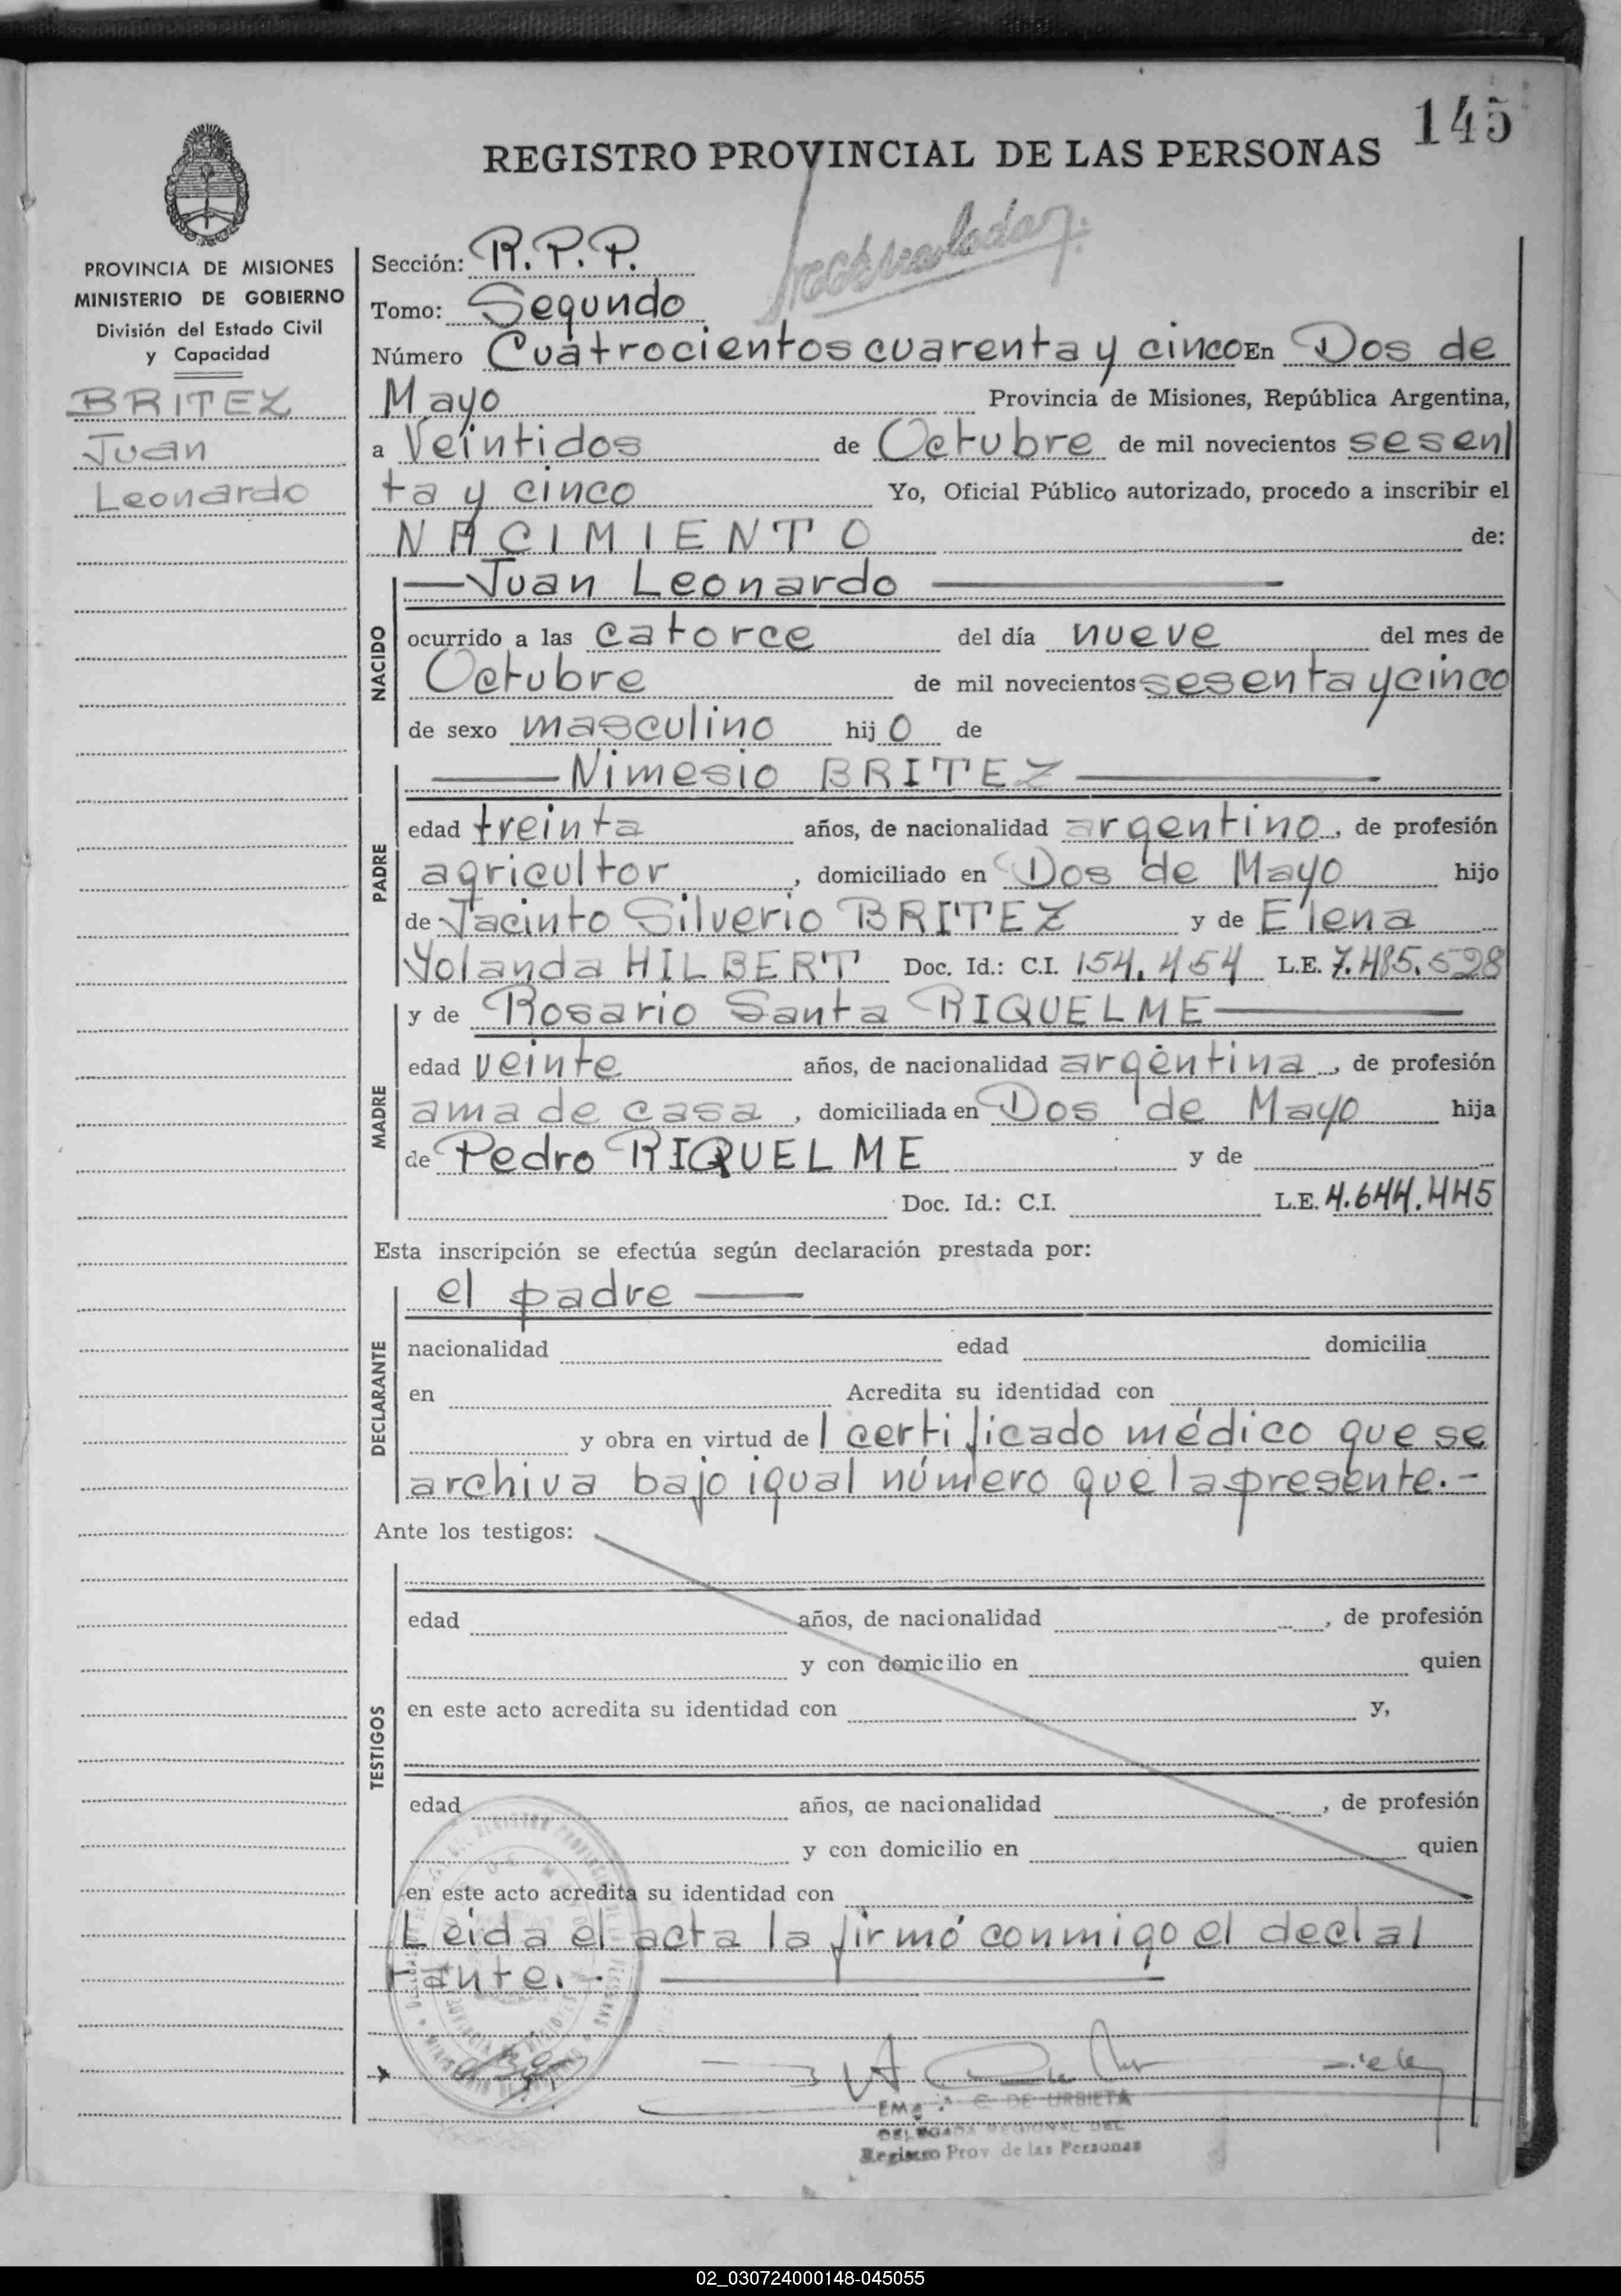 145
REGISTRO PROVINCIAL DE LAS PERSONAS
PROVINCIA DE MISIONES
MINISTERIO DE GOBIERNO
División del Estado Civil
y Capacidad
BRITEZ
Juan
Leonardo
Sección: R.P.P.
Tomo: Segundo
Número Cuatrocientos cuarenta y cinco En Dos de
Mayo Provincia de Misiones, República Argentina,
a Veintidos de Octubre de mil novecientos sesen
ta y cinco Yo, Oficial Público autorizado, procedo a inscribir el
NACIMIENTO de:
NACIDO
Juan Leonardo
ocurrido a las catorce del día nueve del mes de
Octubre de mil novecientos sesenta y cinco
de sexo masculino hijo de
PADRE
Nimesio BRITEZ
edad treinta años, de nacionalidad argentino, de profesión
agricultor, domiciliado en Dos de Mayo hijo
de Jacinto Silverio BRITEZ y de Elena
Yolanda HILBERT Doc. Id.: C.I. 154.454 L.E. 7.485.528
MADRE
y de Rosario Santa RIQUELME
edad veinte años, de nacionalidad argentina, de profesión
ama de casa, domiciliada en Dos de Mayo hija
de Pedro RIQUELME y de
Doc. Id.: C.I. L.E. 4.644.445
Esta inscripción se efectúa según declaración prestada por:
DECLARANTE
el padre
nacionalidad edad domicilia
en Acredita su identidad con
y obra en virtud del certificado médico que se
archiva bajo igual número que la presente.-
Ante los testigos:
TESTIGOS
edad años, de nacionalidad , de profesión
y con domicilio en quien
en este acto acredita su identidad con y,
edad años, de nacionalidad , de profesión
y con domicilio en quien
en este acto acredita su identidad con
Leida el acta la firmó conmigo el decla
rante.-
C. DE URBIETA
DELEGADA REGIONAL DEL
Registro Prov. de las Personas
02_030724000148-045055